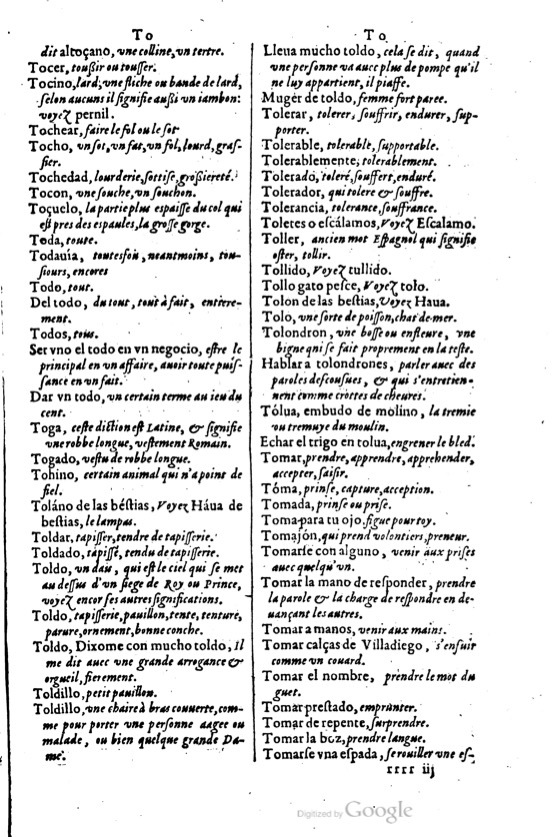 To
dit altoçano, vne colline, vn tertre.
Tocer, toußir ou tousser.
Tocino, lard, vne fliche ou bande de lard,
selon aucuns il signifie außi vn iambon:
voyez pernil.
Tochear, faire le fol ou le sot
Tocho, vn sot, vn fat, vn fol, lourd, gros-
sier.
Tochedad, lourderie, sottise, großiereté.
Tocon, vne souche, vn souchon.
Toçuelo, la partie plus espaisse du col qui
est pres des espaules, la grosse gorge.
Toda, toute.
Todauía, toutesfois, neantmoins, tous-
iours, encores
Todo, tout.
Del todo, du tout, tout à fait, entiere-
ment.
Todos, tous.
Ser vno el todo en vn negocio, estre le
principal en vn affaire, auoir toute puis-
sance en vn fait.
Dar vn todo, vn certain terme au ieu du
cent.
Toga, ceste diction est Latine, & signifie
vne robbe longue, vestement Romain.
Togado, vestu de robbe longue.
Tohino, certain animal qui n'a point de
fiel.
Toláno de las béstias, Voyez Háua de
bestias, le lampas.
Toldar, tapisser, tendre de tapisserie.
Toldado, tapissé, tendu de tapisserie.
Toldo, vn dau, qui est le ciel qui se met
au dessus d'vn siege de Roy ou Prince,
voyez encor ses autres significations.
Toldo, tapisserie, pauillon, tente, tenture,
parure, ornement, bonne conche.
Toldo, Dixome con mucho toldo, Il
me dit auec vne grande arrogance &
orgueil, fierement.
Toldillo, petit pauillon.
Toldillo, vne chaire à bras couuerte, com-
me pour porter vne personne aagee ou
malade, ou bien quelque grande Da-
me.
To
Lleua mucho toldo, cela se dit, quand
vne personne va auec plus de pompe qu'il
ne luy appartient, il piaffe.
Muger de toldo, femme fort paree.
Tolerar, tolerer, souffrir, endurer, sup-
porter.
Tolerable, tolerable, supportable.
Tolerablemente, tolerablement.
Tolerado, toleré, souffert, enduré.
Tolerador, qui tolere & souffre.
Tolerancia, tolerance, souffrance.
Toleres o escálamos, Voyez Escalamo.
Toller, ancien mot Espagnol qui signifie
oster, tollir.
Tollido, Voyez tullido.
Tollo gato pesce, Voyez tolo.
Tolon de las bestias, Voyez Haua.
Tolo, vne sorte de poisson, chat de mer.
Tolondron, vne bosse ou enfleure, vne
bigne qui se fait proprement en la teste.
Hablar a tolondrones, parler auec des
paroles descousues, & qui s'entretien-
nent comme crottes de cheures.
Tólua, embudo de molino, la tremie
ou tremuye du moulin.
Echar el trigo en tolua, engrener le bled.
Tomar, prendre, apprendre, apprehender,
accepter, saisir.
Tóma, prinse, capture, acception.
Tomada, prinse ou prise.
Toma para tu ojo, figue pour toy.
Tomajón, qui prend volontiers, preneur.
Tomarse con alguno, venir aux prises
auec quelqu'vn.
Tomar la mano de responder, prendre
la parole & la charge de respondre en de-
uançant les autres.
Tomar a manos, venir aux mains.
Tomar calças de Villadiego, s'enfuir
comme vn couard.
Tomar el nombre, prendre le mot du
guet.
Tomar prestado, emprunter.
Tomar de repente, surprendre.
Tomar la boz, prendre langue.
Tomarse vna espada, se rouiller vne es-
rrrr iij
Digitized by Google